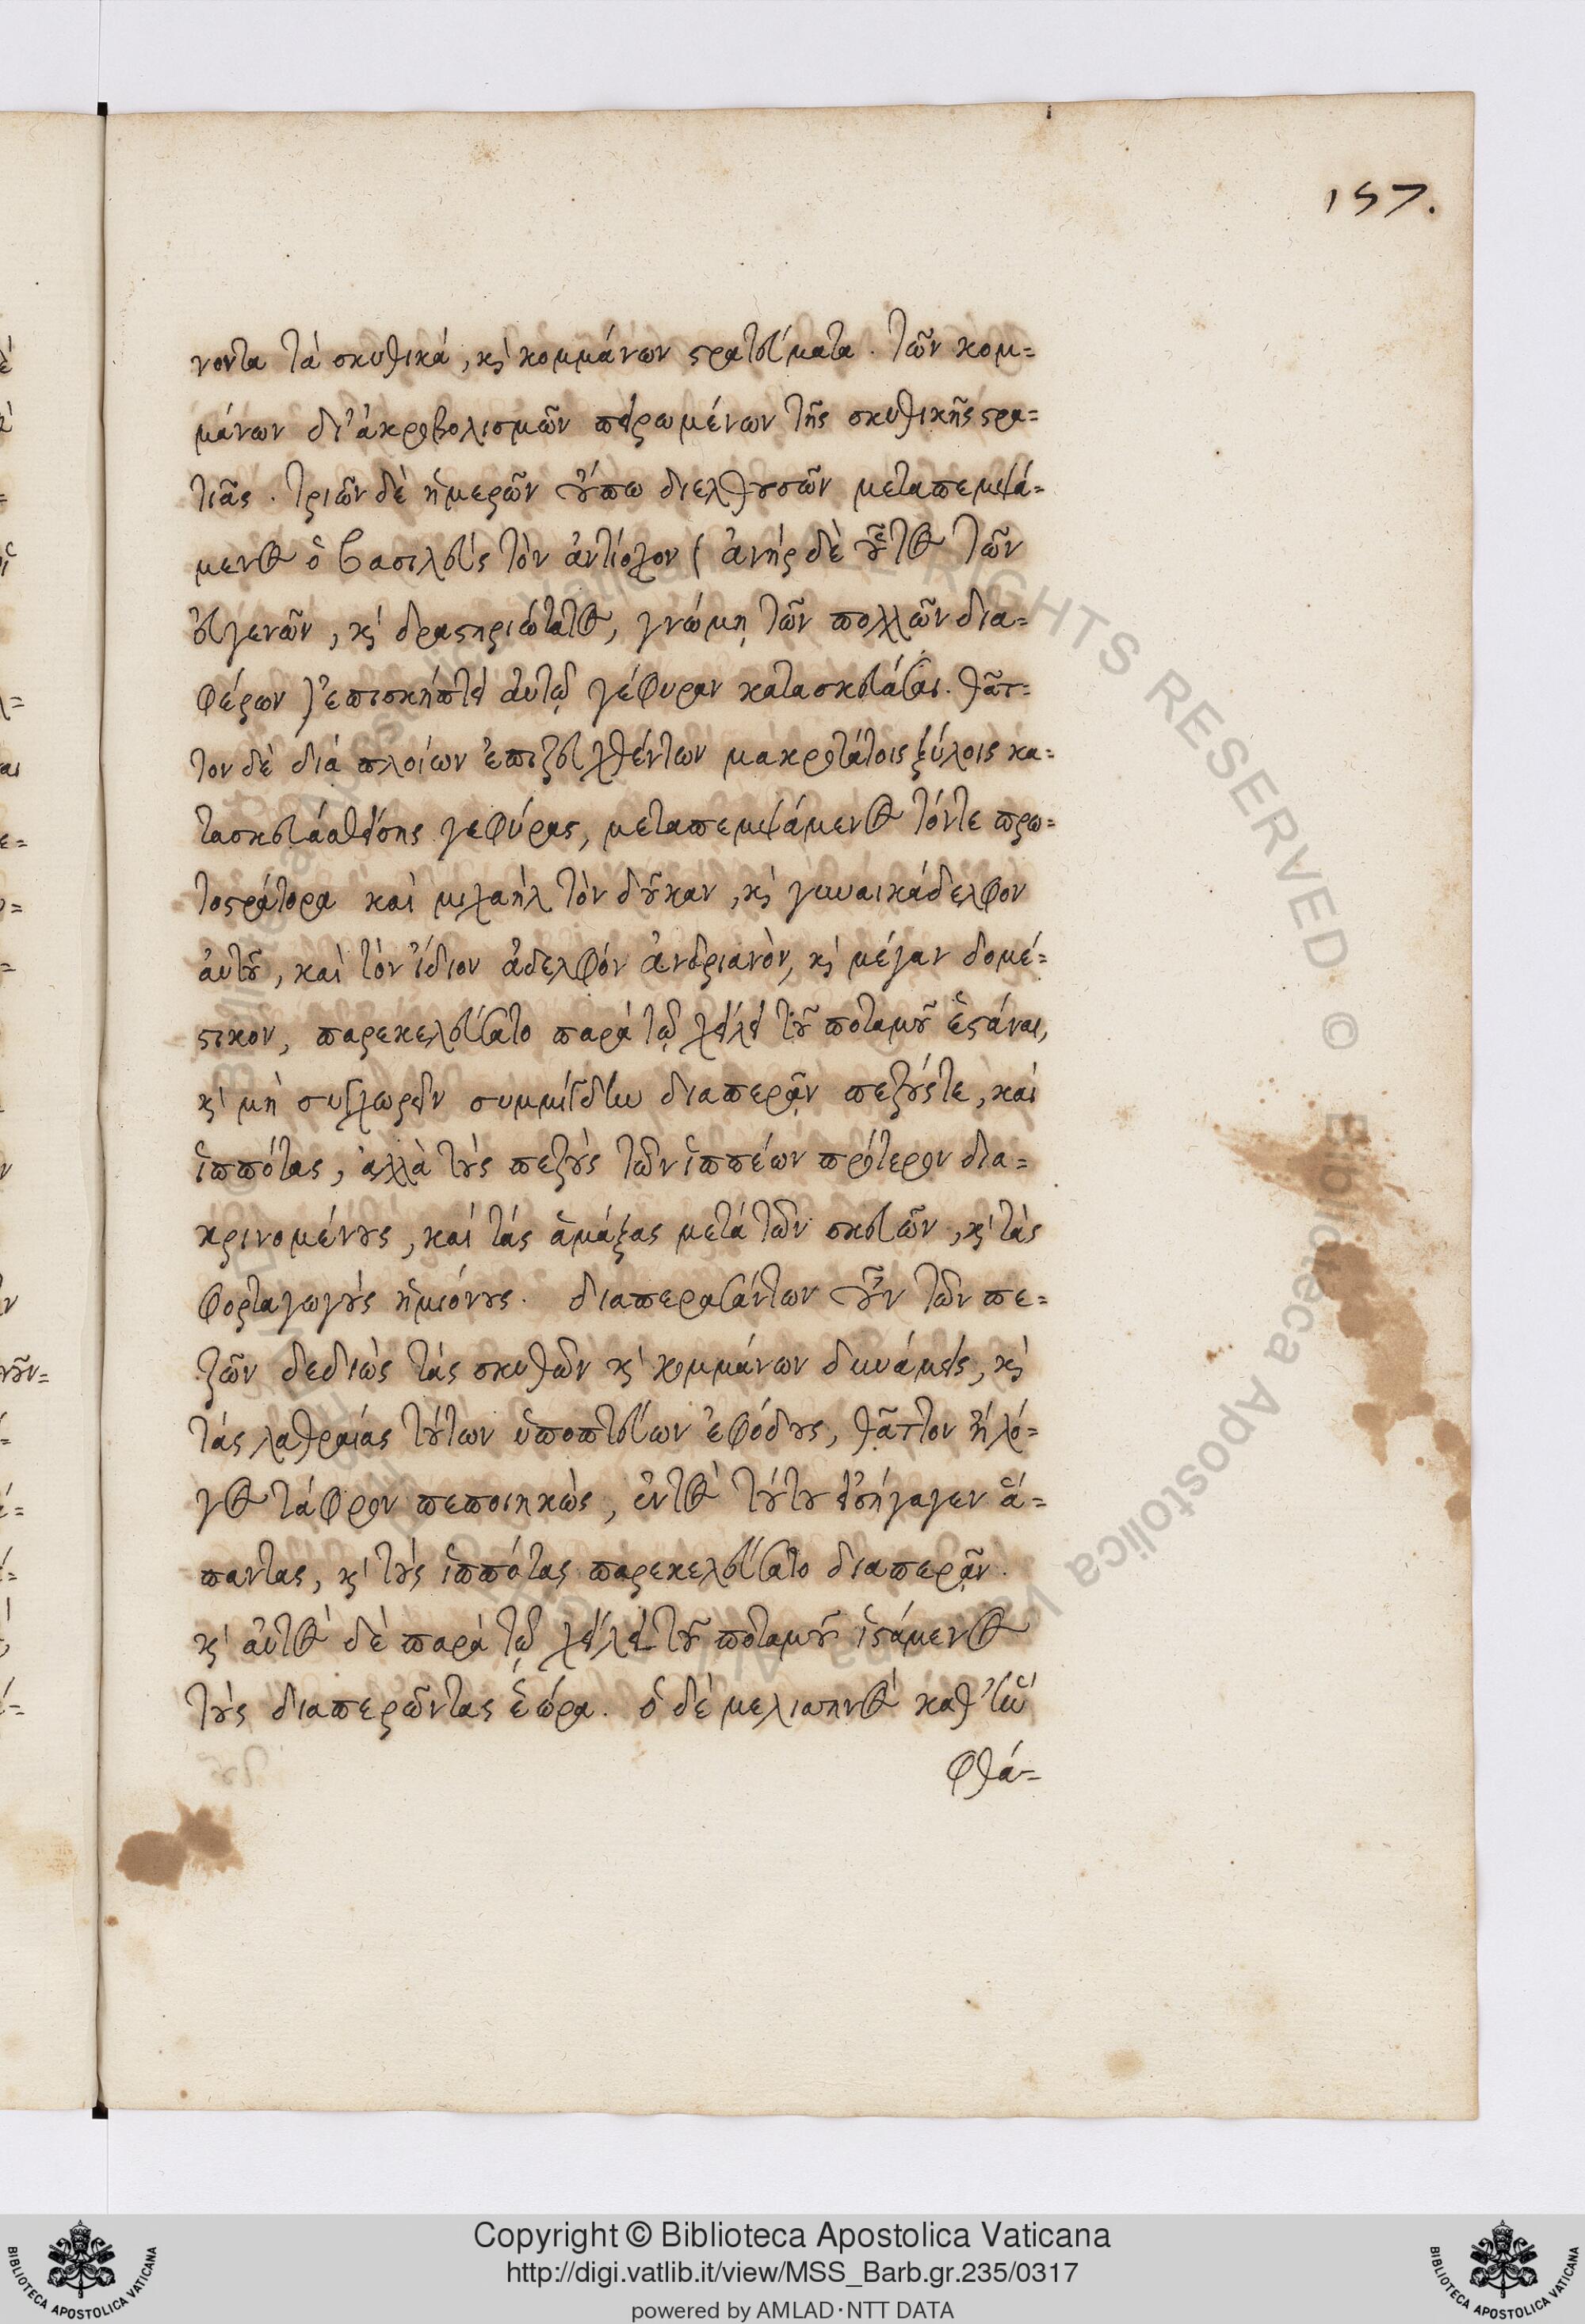 157.
νοντα τὰ σκυθικά, κ̀ κομμάνων στρατεύματα. τῶν κομ=
μάνων δι' ἀκροβολισμῶν πειρωμένων τῆς σκυθικῆς στρα=
τιᾶς. τριῶν δὲ ἡμερῶν οὔπω διελθουσῶν μεταπεμψά=
μενος ὁ βασιλεύς τὸν ἀντίοχον (ἀνήρ δὲ οὗτος τῶν
εὐγενῶν, κ̀ δραστηριώτατος, γνώμῃ τῶν πολλῶν δια=
φέρων) ἐπισκήπτει ἀυτῷ γέφυραν κατασκευάσαι. θᾶτ=
τον δὲ διά πλοίων ἐπιζευχθέντων μακροτάτοις ξύλοις κα=
τασκευασθείσης γεφύρας, μεταπεμψάμενος τόντε πρω=
τοστράτορα καὶ μιχαήλ τὸν δούκαν, κ̀ γυναικάδελφον
ἀυτοῦ, καὶ τόν ἴδιον ἀδελφόν ἀνδριανὸν, κ̀ μέγαν δομέ=
στικον, παρεκελεύσατο παρά τῷ χείλει τοῦ ποταμοῦ ἑστάναι,
κ̀ μὴ συγχωρεῖν συμμίγδην διαπερᾶν πεζούς τε, καὶ
ἱππότας, ἀλλὰ τοὺς πεζοὺς τῶν ἱππέων πρότερον δια=
κρινομένους, καί τάς ἁμάξας μετά τῶν σκευῶν, κ̀ τὰς
φορταγωγούς ἡμιόνους. διαπερασάντων οὖν τῶν πε=
ζῶν δεδιὼς τάς σκυθῶν κ̀ κομμάνων δυνάμεις, κ̀
τάς λαθραίας τούτων ὑποπτεύων ἐφόδους, θᾶττον ἢ λό=
γος τάφρον πεποιηκὼς, ἐντὸς τούτου εἰσήγαγεν ἅ=
παντας, κ̀ τοὺς ἱππότας παρεκελεύσατο διαπερᾶν.
κ̀ ἀυτὸς δὲ παρά τῷ χείλει τοῦ ποταμοῦ ἱστάμενος
τοὺς διαπερῶντας ἑώρα. ὁ δὲ μελισηνός καθ' ἣν
φθά=
Copyright © Biblioteca Apostolica Vaticana
http://digi.vatlib.it/view/MSS_Barb.gr.235/0317
powered by AMLAD·NTT DATA